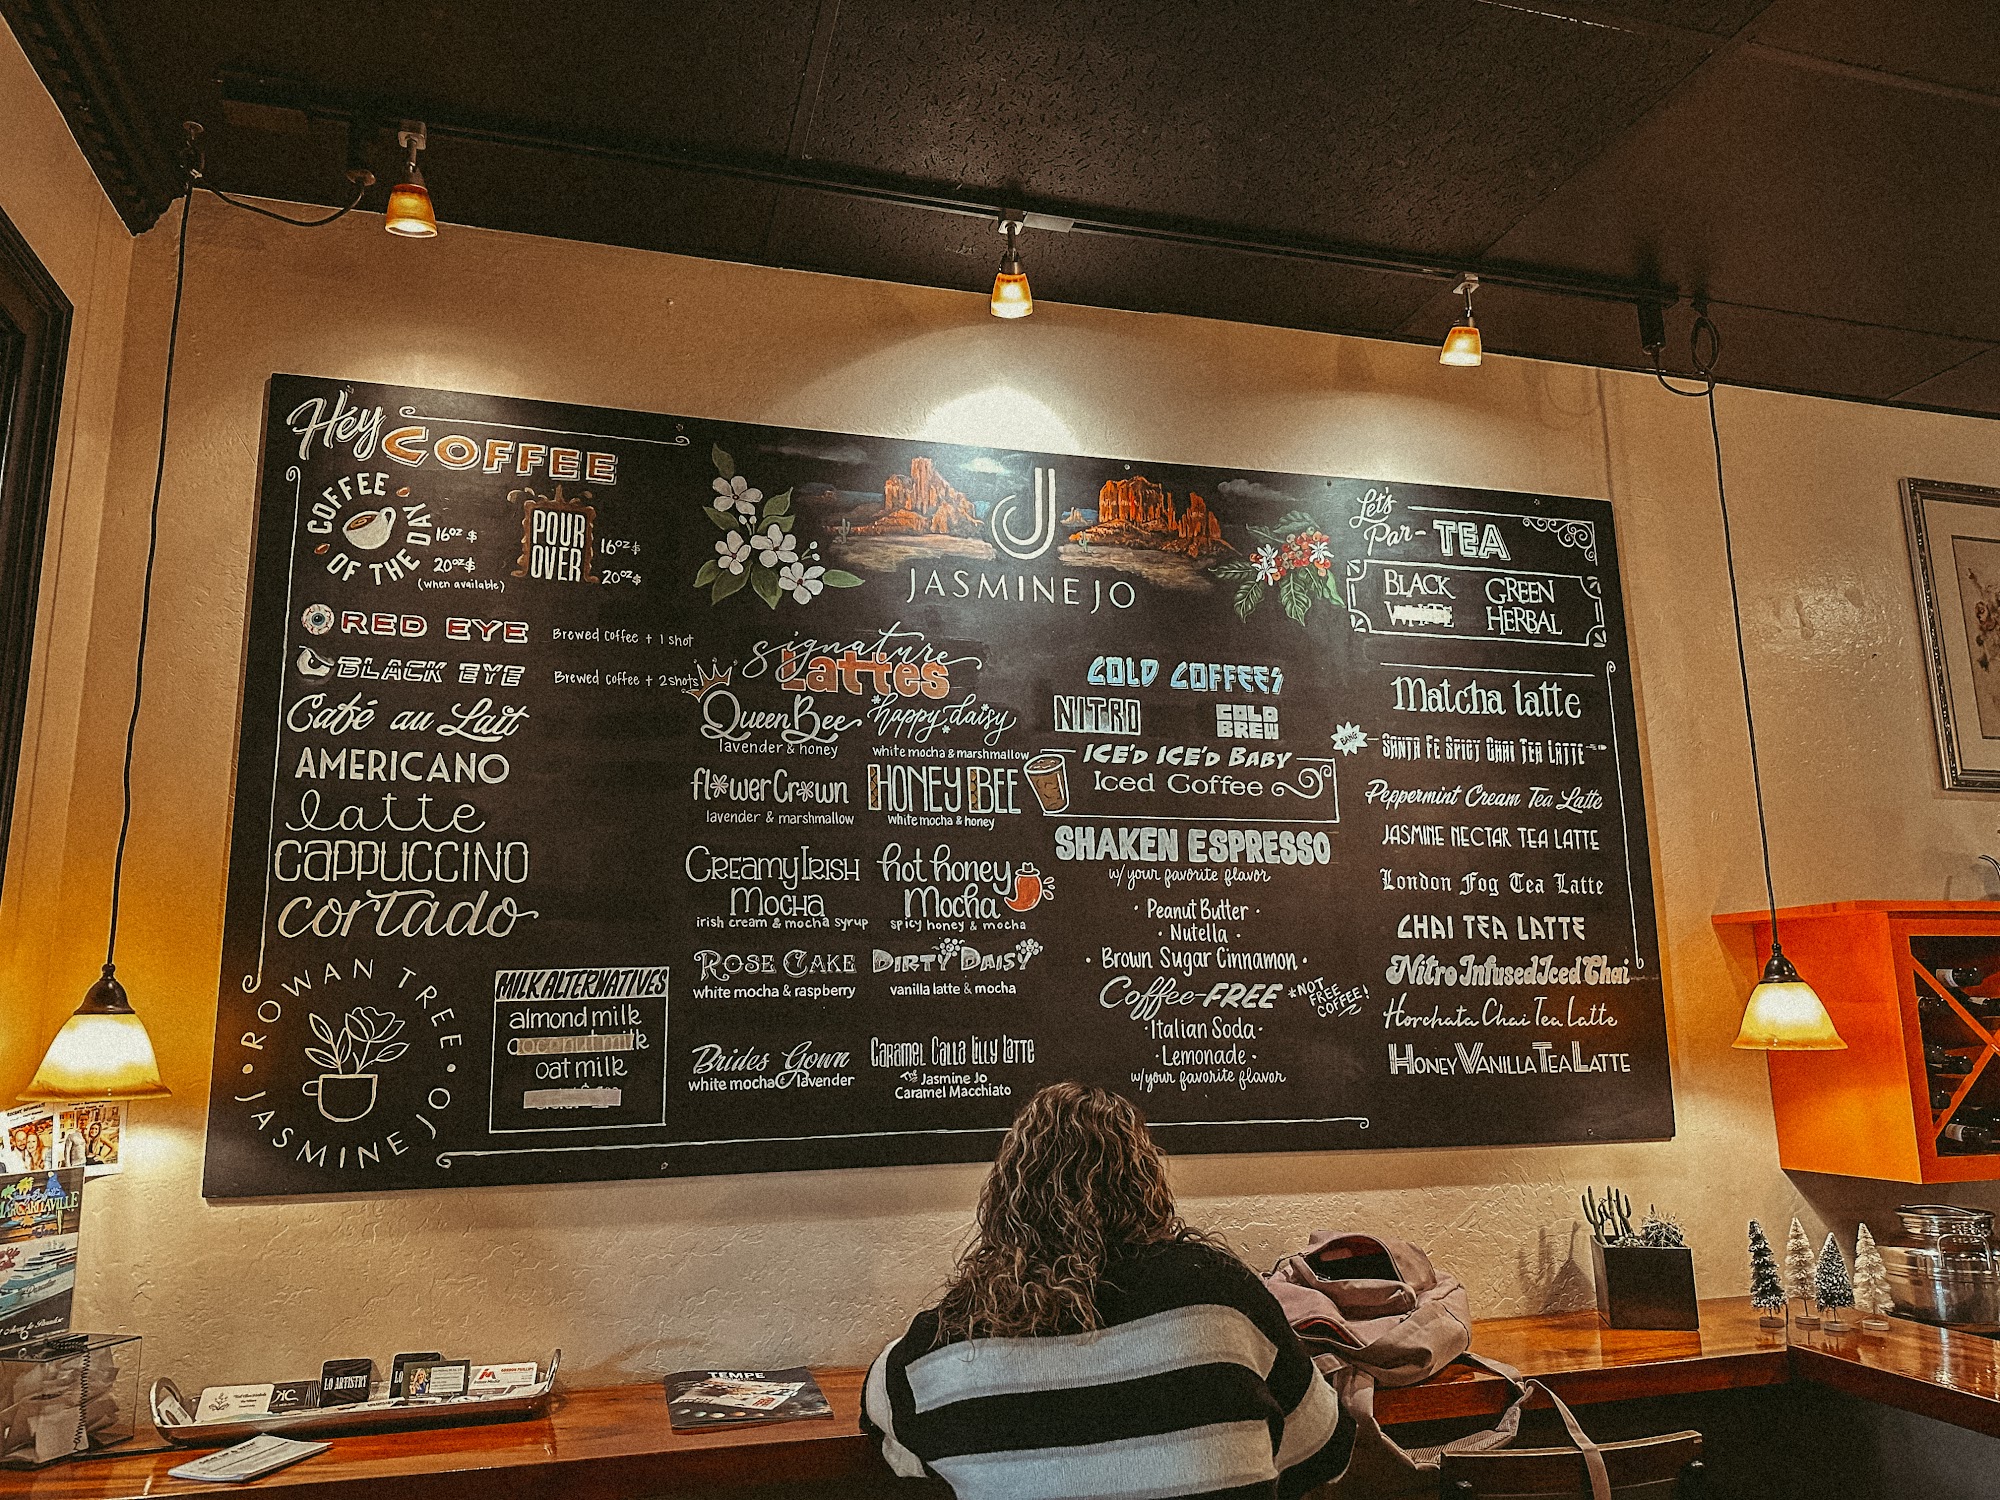 Hey
COFFEE
COFFEE
OF THE DAY
16oz $
20oz $
(when available)
POUR
OVER
16oz $
20oz $
RED EYE
Brewed coffee + 1 shot
BLACK EYE
Brewed coffee + 2 shots
Café au Lait
AMERICANO
latte
CAPPUCCINO
cortado
ROWAN TREE
JASMINE JO
MILK ALTERNATIVES
almond milk
coconut milk
oat milk
JASMINE JO
signature
Lattes
Queen Bee
lavender & honey
happy daisy
white mocha & marshmallow
flower Crown
lavender & marshmallow
HONEY BEE
white mocha & honey
CREAMY IRISH
MOCHA
irish cream & mocha syrup
hot honey
Mocha
spicy honey & mocha
ROSE CAKE
white mocha & raspberry
DIRTY DAISY
vanilla latte & mocha
Brides Gown
white mocha & lavender
CARAMEL CALLA LILLY LATTE
The Jasmine Jo
Caramel Macchiato
COLD COFFEES
NITRO
COLD
BREW
ICE'D ICE'D BABY
Iced Coffee
SHAKEN ESPRESSO
w/your favorite flavor
· Peanut Butter ·
· Nutella ·
· Brown Sugar Cinnamon ·
Coffee-FREE
*NOT
FREE
COFFEE!
· Italian Soda ·
· Lemonade ·
w/your favorite flavor
Let's
Par-TEA
BLACK
GREEN
WHITE
HERBAL
Matcha latte
BANG
SANTA FE SPICY CHAI TEA LATTE
Peppermint Cream Tea Latte
JASMINE NECTAR TEA LATTE
London Fog Tea Latte
CHAI TEA LATTE
Nitro Infused Iced Chai
Horchata Chai Tea Latte
HONEY VANILLA TEA LATTE
MARGARITAVILLE
LO ARTISTRY
LO
TEMPE